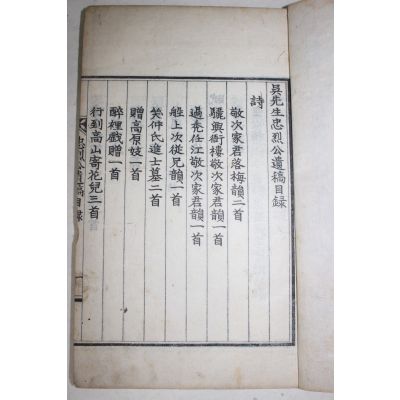 吳先生忠烈公遺稿目録
詩
敬次家君落梅韻二首
驪興衙樓敬次家君韻一首
過禿任江敬次家君韻一首
船上次從兄韻一首
哭仲氏進士墓二首
贈高原妓一首
醉裡戱贈一首
行到高山寄花兒三首
忠烈公遺稿目録